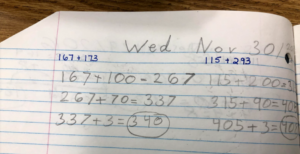 Wed Nov 30
167+173 115+293
167+100=267 115+200=
267+70=337 315+90=
337+3=340 405+3=